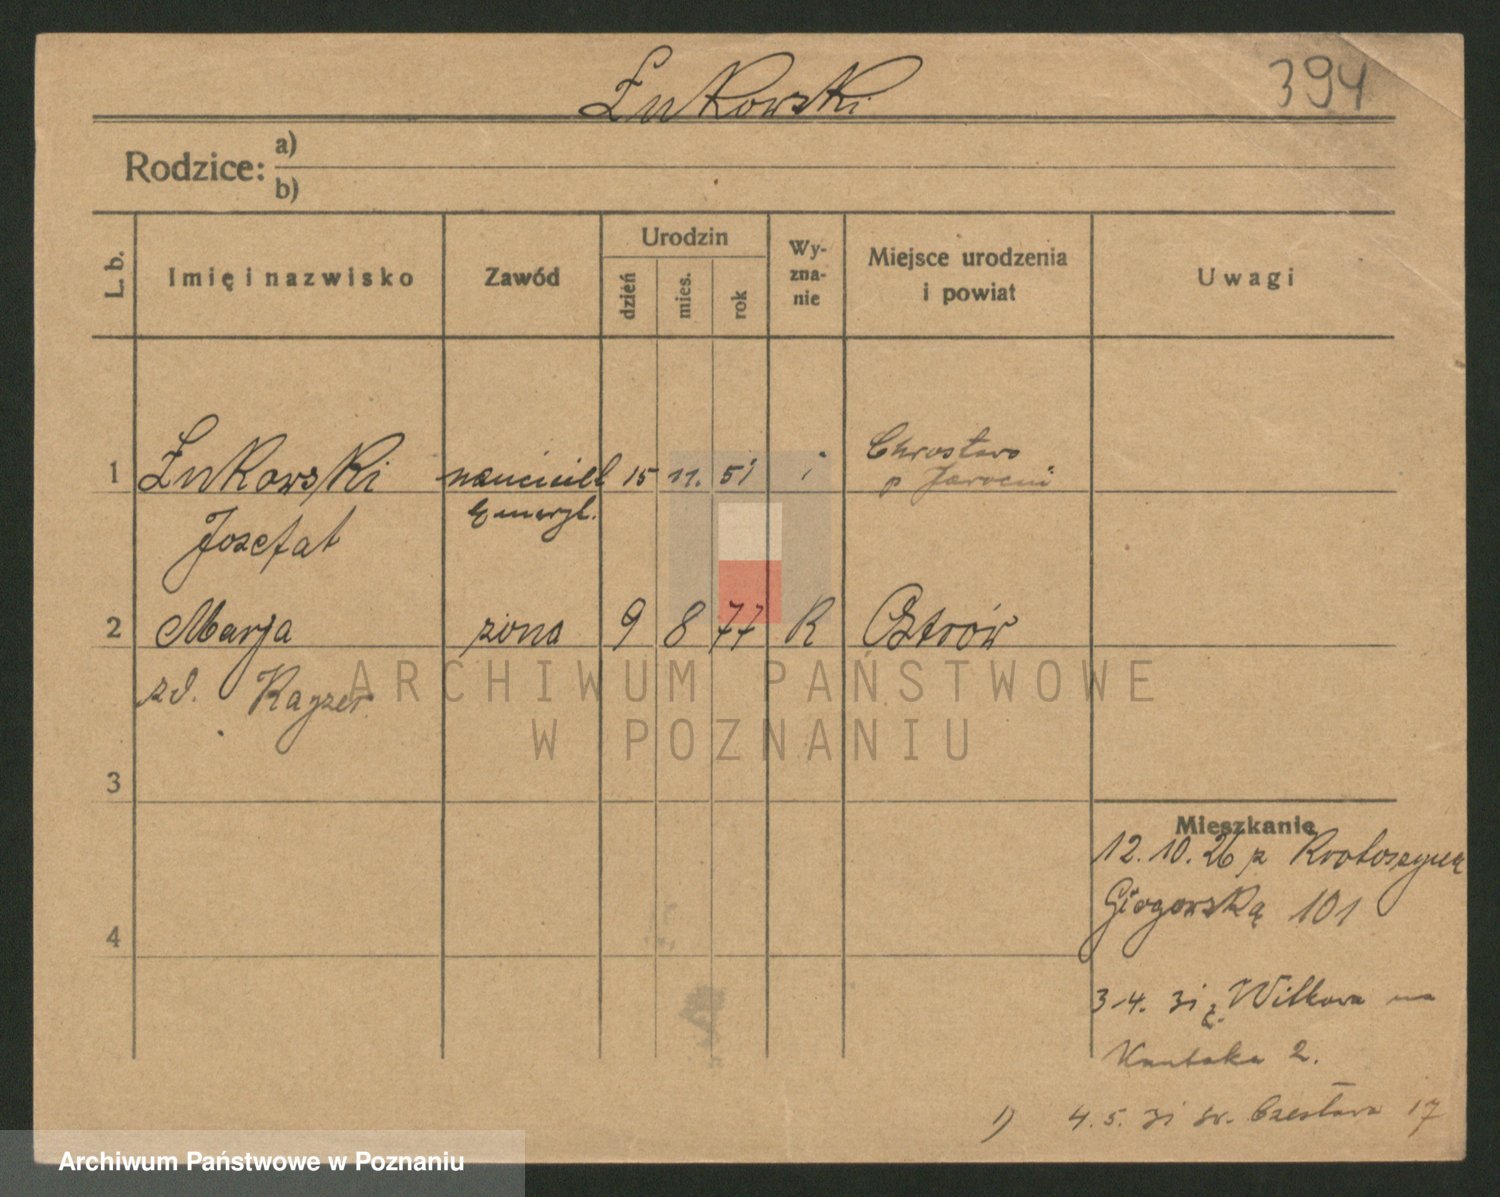 Żukowski
394
Rodzice: a)
b)
L. b.
Imię i nazwisko
Zawód
Urodzin
dzień
mies.
rok
Wy-
zna-
nie
Miejsce urodzenia
i powiat
Uwagi
1 Żukowski 15 11. 51
Josefat
emeryt.
Chrostowo
p Jarocin
2 Marja żona 9 8 77 R Ostrów
zd. Kayzer
3
4
Mieszkanie
12.10.26 z Krotoszyna
101
3.4. 31 ż. na
Kantaka 2.
1) 4.5. 31 św. Czesława 17
ARCHIWUM PAŃSTWOWE
W POZNANIU
Archiwum Państwowe w Poznaniu